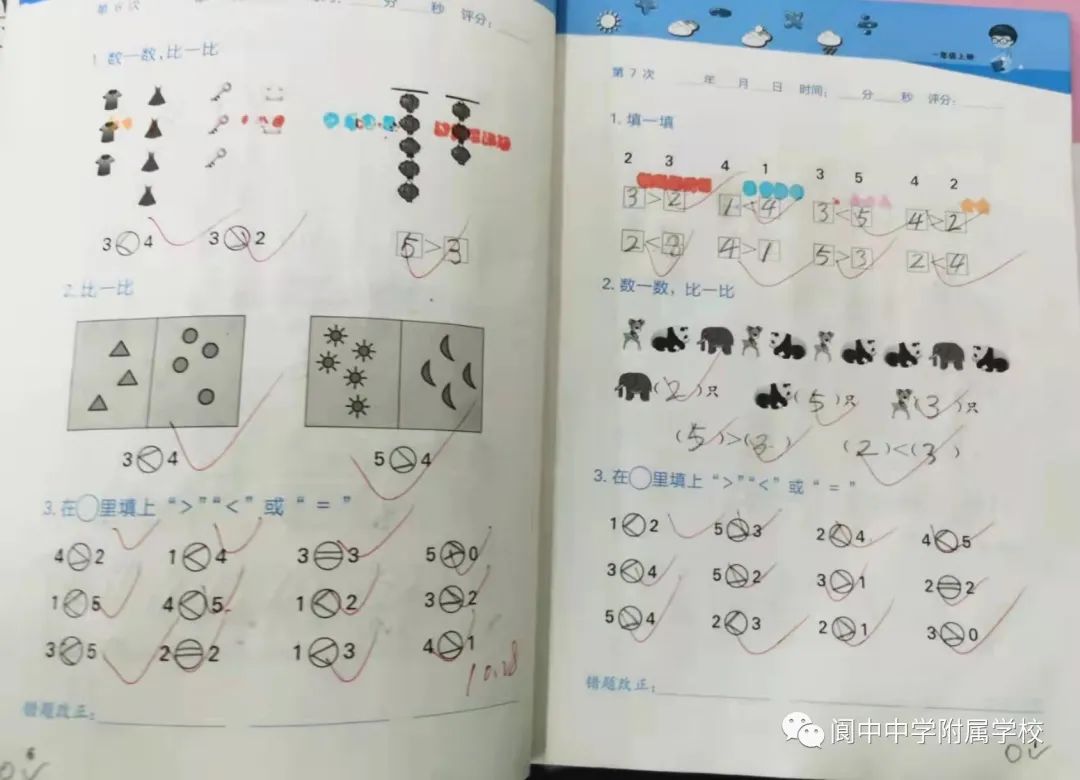 第6次 分 秒 评分:
1.数一数,比一比
3<4
3>2
5>3
2.比一比
3<4
5>4
3.在○里填上“>”“<”或“=”
4>2 1<4 3=3 5 0
1<5 4<5 1<2 3>2
3<5 2=2 1<3 4>1
10.28
错题改正:
6
一年级上册
第7次 年 月 日 时间: 分 秒 评分:
1.填一填
2 3 4 1 3 5 4 2
3>2 1<4 3<5 4>2
2<3 4>1 5>3 2<4
2.数一数,比一比
(2)只 (5)只 (3)只
(5)>(3) (2)<(3)
3.在○里填上“>”“<”或“=”
1<2 5>3 2<4 4<5
3<4 5>2 3>1 2=2
5>4 2<3 2>1 3>0
错题改正:
阆中中学附属学校